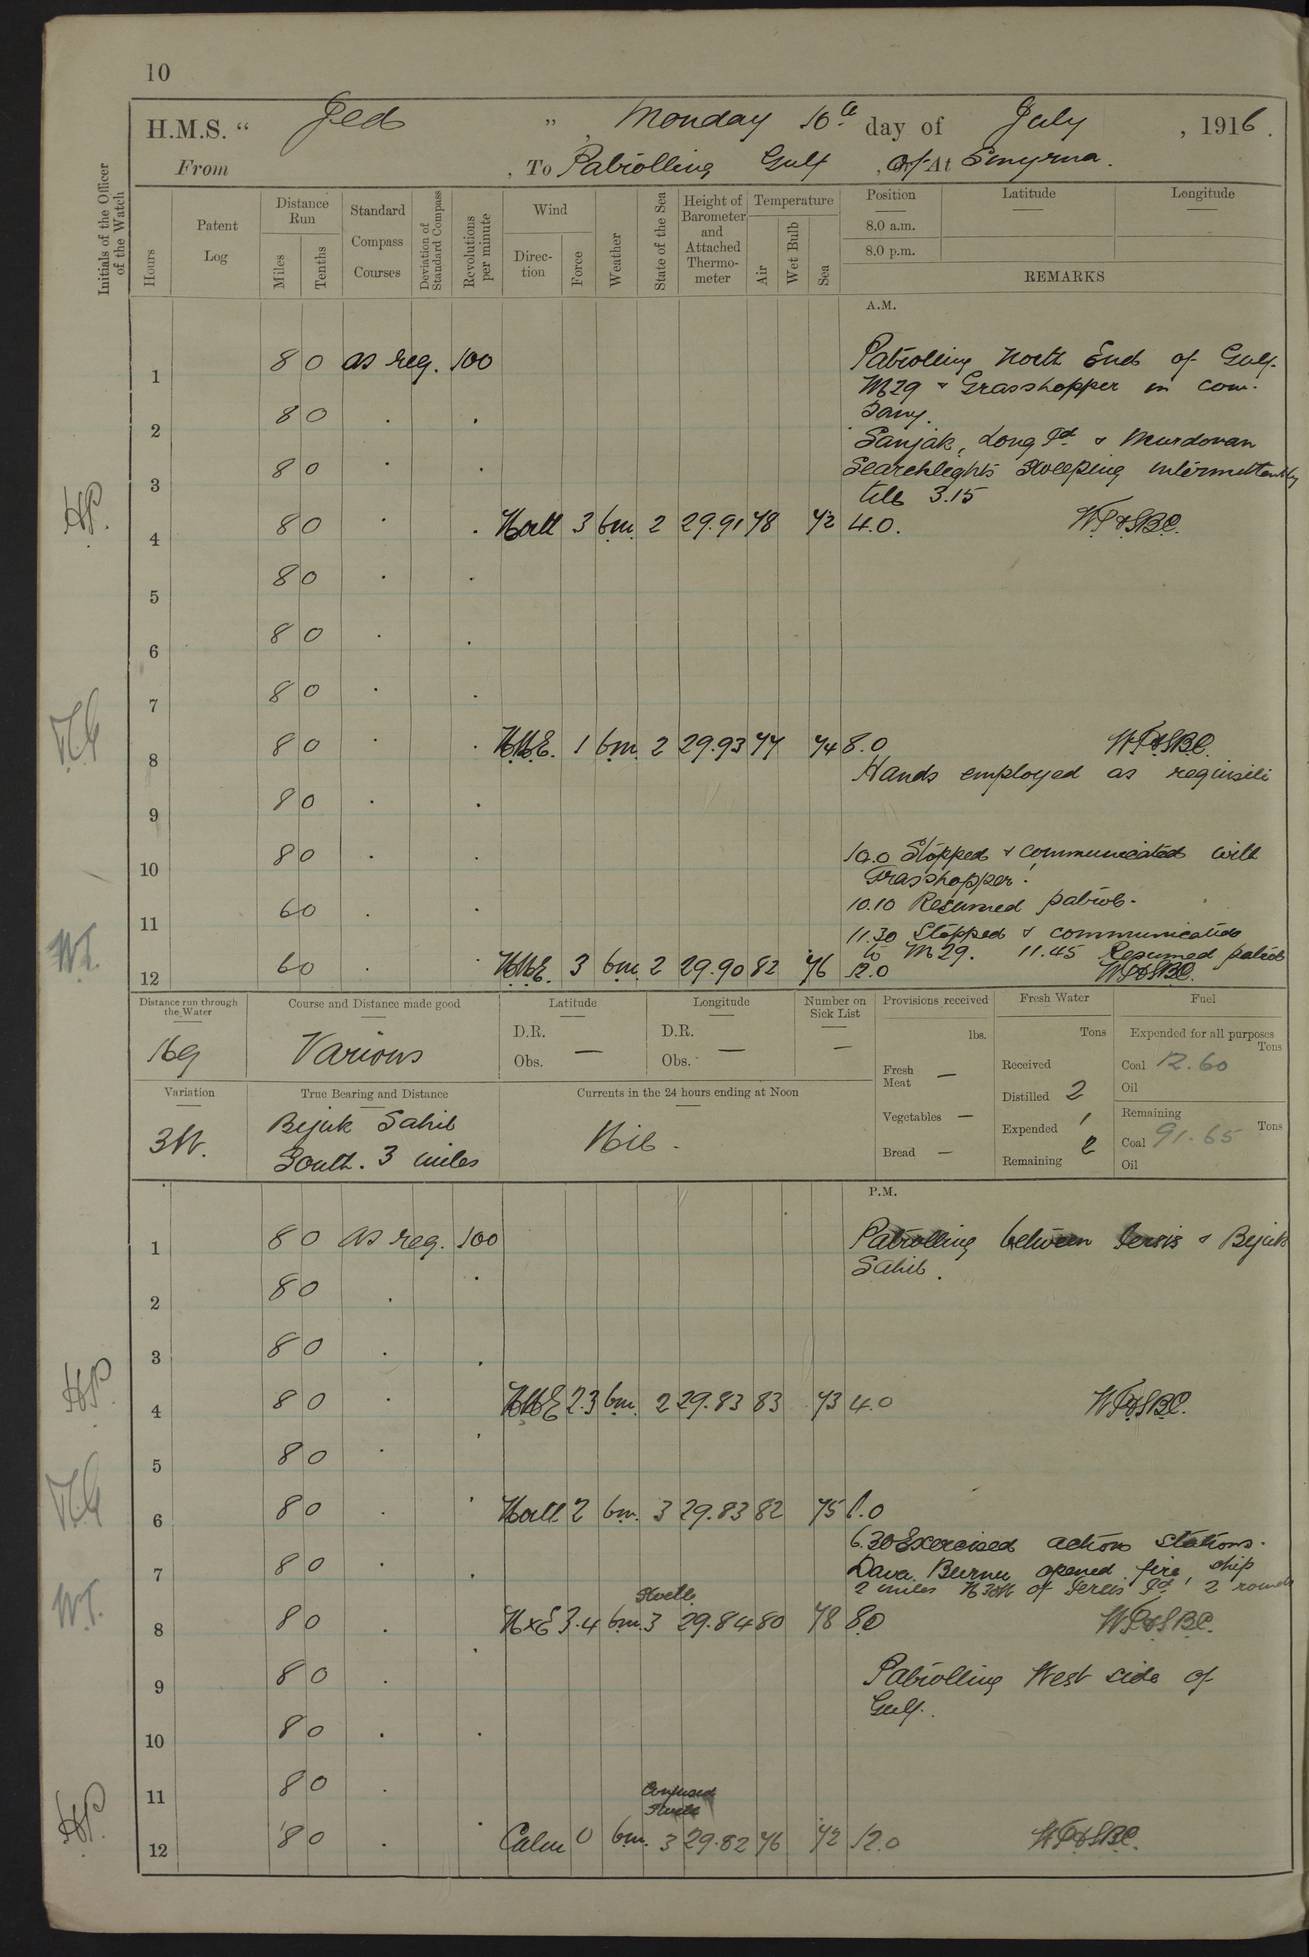 10
H.M.S. " Jed ", Monday 10th day of July, 1916.
From , To Patrolling Gulf, of At Smyrna.
Initials of the Officer of the Watch
Hours
Patent Log
Distance Run
Miles
Tenths
Standard Compass Courses
Deviation of Standard Compass
Revolutions per minute
Wind
Direction
Force
Weather
State of the Sea
Height of Barometer and Attached Thermometer
Temperature
Air
Wet Bulb
Sea
Position
8.0 a.m.
8.0 p.m.
Latitude
Longitude
REMARKS
A.M.
1 8 0 as req. 100 Patrolling North End of Gulf.
M29 & Grasshopper in com-
pany.
2 8 0 . .
Sanjak, Long Id & Murdovan
3 8 0 . . Searchlights sweeping intermittently
till 3.15
HP. 4 8 0 . . North 3 b.m. 2 29.91 78 72 4.0. WP&SBC.
5 8 0 . .
6 8 0 . .
7 8 0 . .
8 8 0 . . N.N.E. 1 b.m. 2 29.93 77 74 8.0 WP&SBC.
Hands employed as requisite
9 8 0 . .
10 8 0 . . 10.0 Stopped & communicated with
Grasshopper.
11 6 0 . . 10.10 Resumed patrol.
11.30 Stopped & communicated
to M29. 11.45 Resumed patrol
WT. 12 6 0 . . N.N.E. 3 b.m. 2 29.90 82 76 12.0 WP&SBC.
Distance run through the Water
169
Course and Distance made good
Various
Latitude
D.R.
Obs. —
Longitude
D.R.
Obs. —
Number on Sick List
—
Provisions received
lbs.
Fresh Meat —
Vegetables —
Bread —
Fresh Water
Tons
Received
Distilled 2
Expended 1
Remaining 2
Fuel
Expended for all purposes
Tons
Coal 12.60
Oil
Remaining
Tons
Coal 91.65
Oil
Variation
3W.
True Bearing and Distance
Bejuk Sahib
South. 3 miles
Currents in the 24 hours ending at Noon
Nil.
P.M.
1 8 0 as req. 100 Patrolling between & Bejuk
Sahib.
2 8 0 . .
3 8 0 . .
HP. 4 8 0 . . NNE 2.3 b.m. 2 29.83 83 73 4.0 WP&SBC.
5 8 0 . .
6 8 0 . . North 2 b.m. 3 29.83 82 75 6.0
6.30 Exercised action stations.
7 8 0 . . Dava Burnu opened fire, ship
2 miles of Id, 2 rounds
WT. 8 8 0 . . NxE 3.4 b.m. 3 Swell 29.84 80 78 8.0 WP&SBC.
9 8 0 . Patrolling West side of
Gulf.
10 8 0 . .
11 8 0 .
Confused
Swell
HP. 12 8 0 . . Calm 0 b.m. 3 29.82 76 72 12.0 WP&SBC.